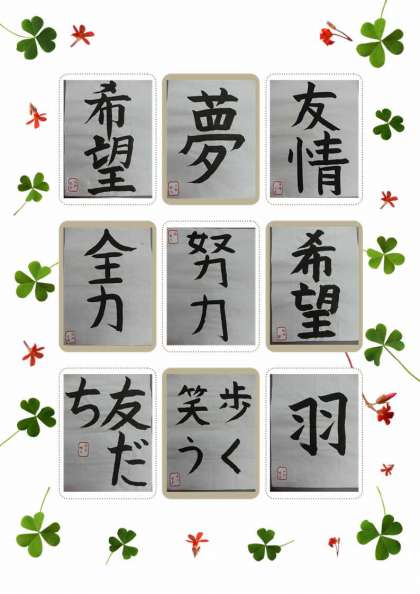 希望
夢
友情
全力
努力
希望
友だ
ち
歩く
笑う
羽